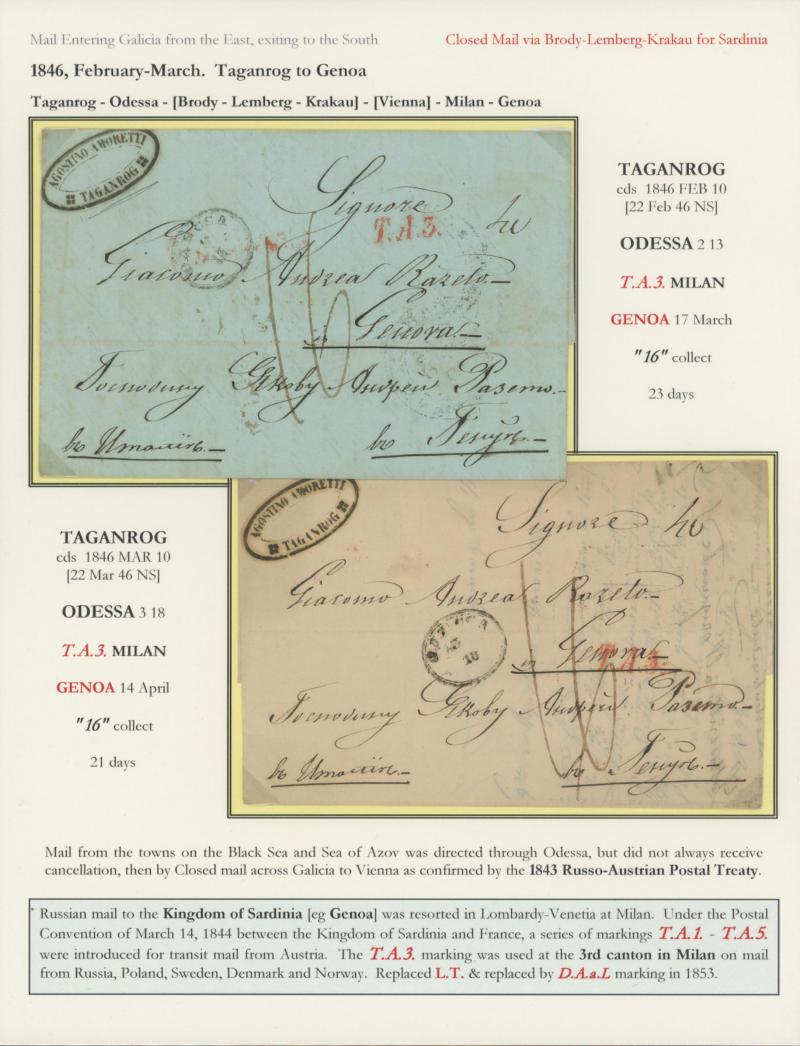 Mail Entering Galicia from the East, exiting to the South
Closed Mail via Brody-Lemberg-Krakau for Sardinia
1846, February-March. Taganrog to Genoa
Taganrog - Odessa - [Brody - Lemberg - Krakau] - [Vienna] - Milan - Genoa
AGOSTINO AMORETTI
TAGANROG
Signore
T.A.3.
Giacomo Andrea Razeto
in Genova
Господину Якобу Андреи Разето
въ Италiю
въ Генуѣ
TAGANROG
cds 1846 FEB 10
[22 Feb 46 NS]
ODESSA 2 13
T.A.3. MILAN
GENOA 17 March
"16" collect
23 days
AGOSTINO AMORETTI
TAGANROG
Signore
Giacomo Andrea Razeto
in Genova
T.A.3.
18
Господину Якобу Андреи Разето
въ Италiю
въ Генуѣ
TAGANROG
cds 1846 MAR 10
[22 Mar 46 NS]
ODESSA 3 18
T.A.3. MILAN
GENOA 14 April
"16" collect
21 days
Mail from the towns on the Black Sea and Sea of Azov was directed through Odessa, but did not always receive
cancellation, then by Closed mail across Galicia to Vienna as confirmed by the 1843 Russo-Austrian Postal Treaty.
* Russian mail to the Kingdom of Sardinia [eg Genoa] was resorted in Lombardy-Venetia at Milan. Under the Postal
Convention of March 14, 1844 between the Kingdom of Sardinia and France, a series of markings T.A.1. - T.A.5.
were introduced for transit mail from Austria. The T.A.3. marking was used at the 3rd canton in Milan on mail
from Russia, Poland, Sweden, Denmark and Norway. Replaced L.T. & replaced by D.A.a.L marking in 1853.